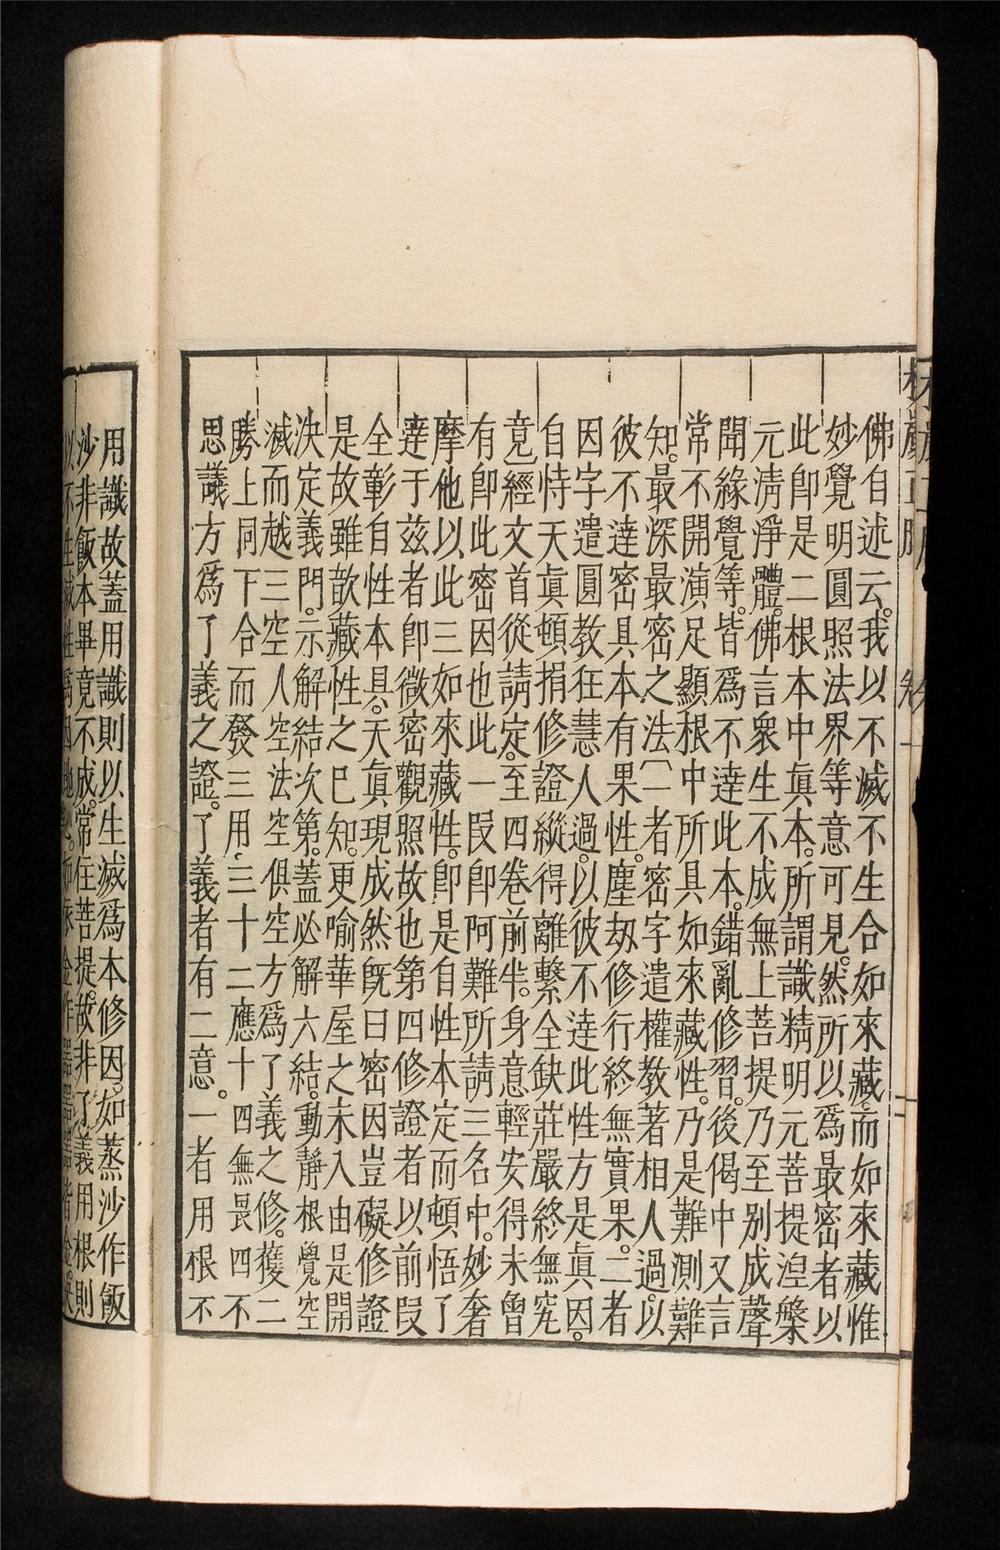 佛自述云。我以不滅不生合如來藏。而如來藏惟
妙覺明圓照法界等意可見。然所以為最密者以
此卽是二根本中眞本。所謂識精明元菩提湼槃
元淸淨體。佛言衆生不成無上菩提乃至別成聲
聞緣覺等。皆爲不達此本。錯亂修習。後偈中又言
常不開演足顯根中所具如來藏性。乃是難測難
知。最深最密之法〇一者密字遣權教著相人過。以
彼不達密具本有果性。塵刼修行終無實果。二者
因字遣圓教狂慧人過。以彼不達此性方是眞因。
自恃天眞頓捐修證。縱得離繫全缺莊嚴終無究
竟。經文首從請定。至四卷前半。身意輕安得未曾
有卽此密因也此一叚卽阿難所請三名中。妙奢
摩他以此三如來藏性。卽是自性本定而頓悟了
達于兹者卽微密觀照故也第四修證者以前叚
全彰自性本具。天眞現成然旣曰密因豈礙修證
是故雖歆藏性之巳知。更喻華屋之未入由是開
決定義門。示解結次第。蓋必解六結。動靜根覺空
滅而越三空人空法空俱空方爲了義之修。獲二
勝上同下合而發三用。三十二應十四無畏四不
思議方爲了義之證。了義者有二意。一者用根不
用識故蓋用識則以生滅爲本修因。如蒸沙作飯
沙非飯本畢竟不成。常住菩提。故非了義用根則